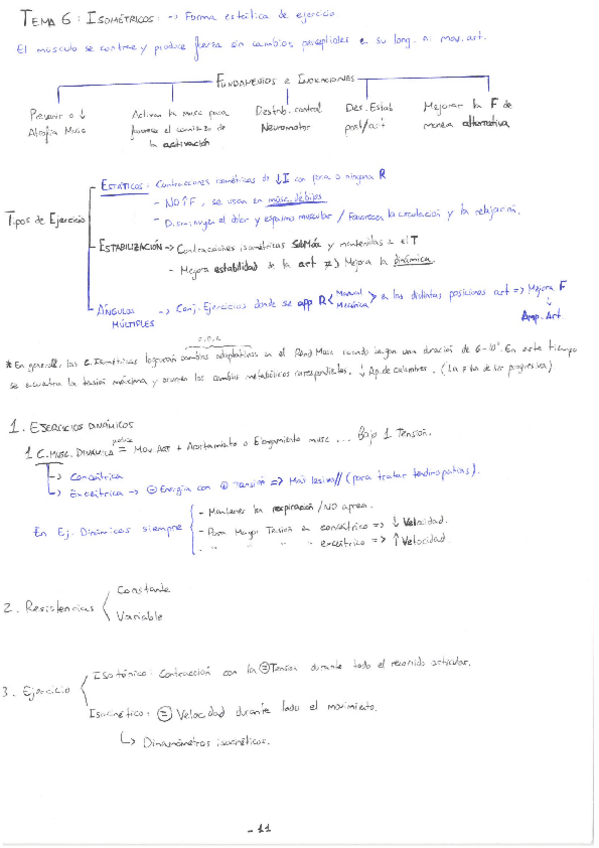 TEMA 6: ISOMÉTRICOS: -> Forma estática de ejercicio
El músculo se contrae y produce fuerza sin cambios perceptibles en su long. ni mov. art.
FUNDAMENTOS e INDICACIONES
Prevenir o ↓ Atrofia Musc
Activar la musc para favorecer el comienzo de la activación
Distrib. control Neuromotor
Des. Estab post/art
Mejorar la F de manera alternativa
Tipos de Ejercicio
ESTÁTICOS: Contracciones isométricas de ↓I con poca o ninguna R
- NO ↑F, se usan en músc. débiles
- Disminuyen el dolor y espasmo muscular / Favorecen la circulación y la relajación.
ESTABILIZACIÓN -> Contracciones isométricas SubMáx y mantenidas en el T
- Mejora estabilidad de la art ≠> Mejora la dinámica.
ÁNGULOS MÚLTIPLES -> Conj. Ejercicios donde se app R < Manual Mecánica > en las distintas posiciones art => Mejora F
↓
Amp. Art.
* En general, las C. Isométricas lograrán cambios adaptativos en el Rend Musc cuando tengan una duración de 6-10". En este tiempo
se encuentra la tensión máxima y ocurren los cambios metabólicos correspondientes. ↓ Ap. de calambres. (La F ha de ser progresiva)
1. EJERCICIOS DINÁMICOS
1 C. MUSC. DINÁMICA produce = Mov Art + Acortamiento o Elongamiento musc ... Bajo 1 Tensión.
-> Concéntrica
-> Excéntrica -> ⊖ Energía con ⊕ Tensión => Más lesiva // (para tratar tendinopatías).
En Ej. Dinámicos siempre
- Mantener la respiración / NO apnea.
- Para Mayor Tensión en concéntrico => ↓ Velocidad.
" " " " excéntrico => ↑ Velocidad.
2. Resistencias
Constante
Variable
3. Ejercicio
Isotónico: Contracción con la = Tensión durante todo el recorrido articular.
Isocinético: = Velocidad durante todo el movimiento.
↳ Dinamómetros isocinéticos.
- 11